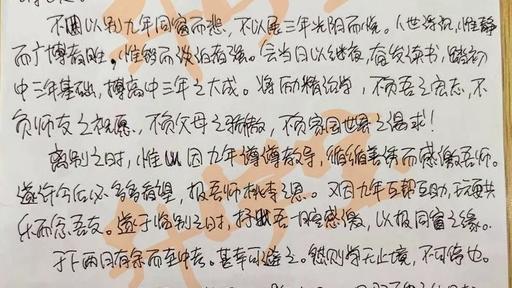 不因以别九年同窗而悲，不以展三年光阴而悦。人世浮沉，惟静
而广博者胜，惟韧而淡泊者强。会当日以继夜，奋发读书，踏初
中三年基础，搏高中三年之大成。将向精治学，不负吾之宏志，不
负师友之祝愿，不负父母之骄傲，不负家国世界之渴求！
离别之时，惟以因九年谆谆教导，循循善诱而感激吾师。
遂许今后必多多看望，报吾师桃李之恩。又因九年互帮互助，玩耍共
乐而念吾友。遂于临别之时，抒出吾一腔感激，以报同窗之缘。
于下两日有余而至中考。基本可逢之。然则学无止境，不可停也。